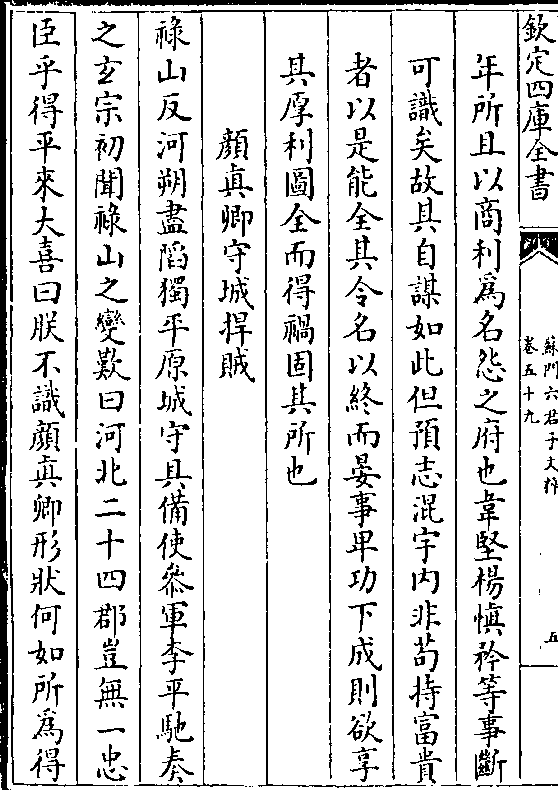 欽定四庫全書
蘇門六君子文粹
卷五十九
五
年所且以商利為名怨之府也韋堅楊慎矜等事斷
可識矣故其自謀如此但預志混宇内非茍持富貴
者以是能全其令名以終而晏事卑功下成則欲享
其厚利圖全而得禍固其所也
顔真卿守城捍賊
禄山反河朔盡䧟獨平原城守具備使叅軍李平馳奏
之玄宗初聞禄山之變歎曰河北二十四郡豈無一忠
臣乎得平來大喜曰朕不識顔真卿形狀何如所為得